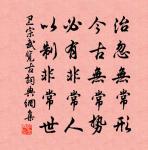 治忽無常形
今古無常勢
必有非常人
以制非常世
卫宗武覽古詞典網集